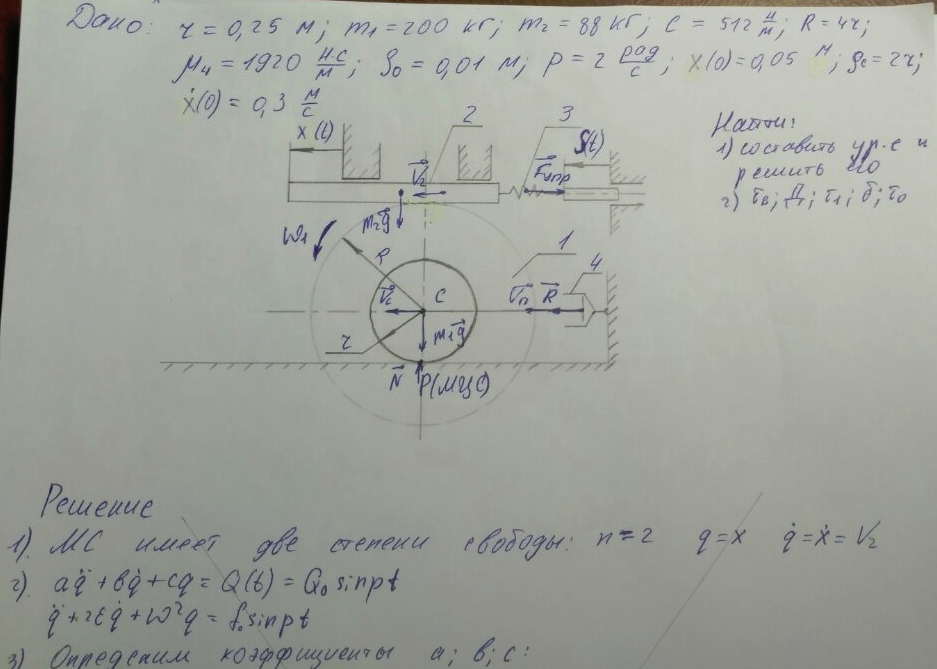 Дано: r = 0,25 м; m₁ = 200 кг; m₂ = 88 кг; C = 512 н/м; R = 4r;
μ₄ = 1920 н·с/м; S₀ = 0,01 м; p = 2 рад/с; x(0) = 0,05 м; ρc = 2r;
ẋ(0) = 0,3 м/с
Найти:
1) составить ур-е и
решить его
2) τв; Д; τ₁; δ; τ₀
x(t)
2
3
S(t)
V₂
Fупр
m₂g
ω₁
R
1
4
Vc
C
Vп
R
r
m₁g
N
P(МЦС)
Решение
1). МС имеет две степени свободы: n = 2 q = x q̇ = ẋ = V₂
2). aq̈ + bq̇ + cq = Q(t) = Q₀ sinpt
q̈ + 2εq̇ + ω²q = f₀ sinpt
3) Определим коэффициенты a; b; c: